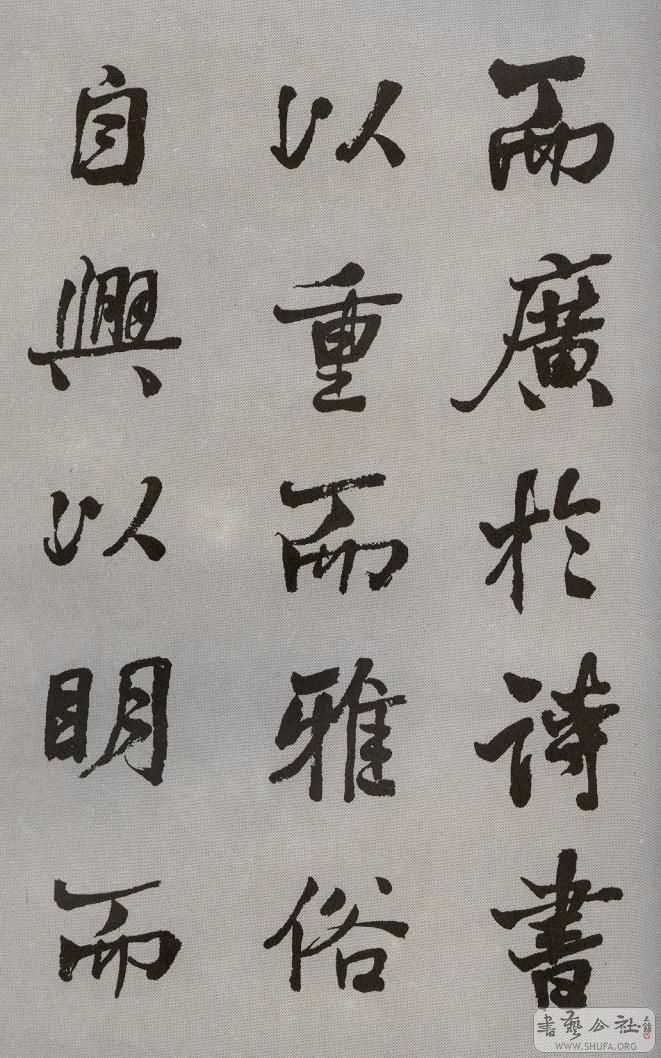 而廣於詩書
以重而雅俗
自興以明而
書藝公社
WWW.SHUFA.ORG